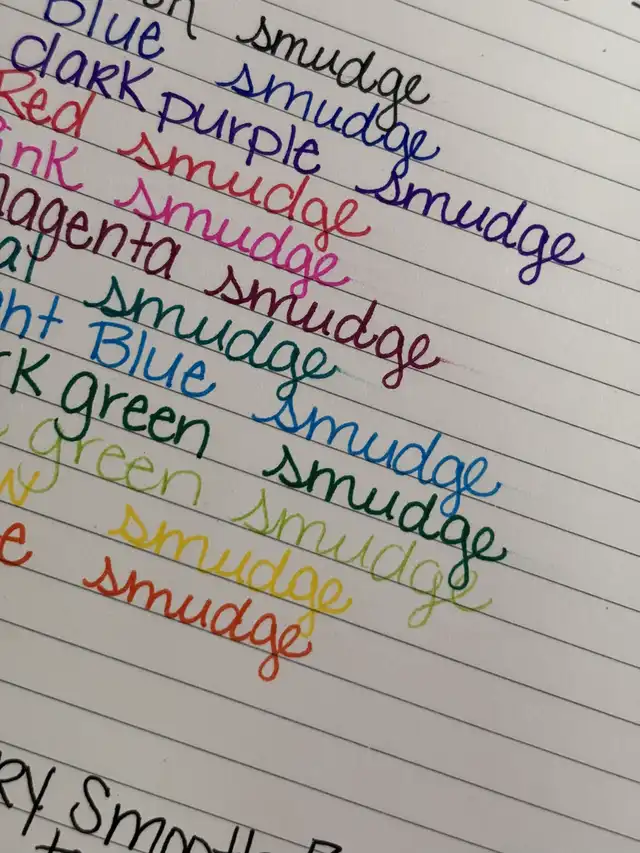 smudge
Blue smudge
dark purple smudge
Red smudge
ink smudge
magenta smudge
smudge
ht Blue smudge
rk green smudge
green smudge
w smudge
e smudge
ey Smooth